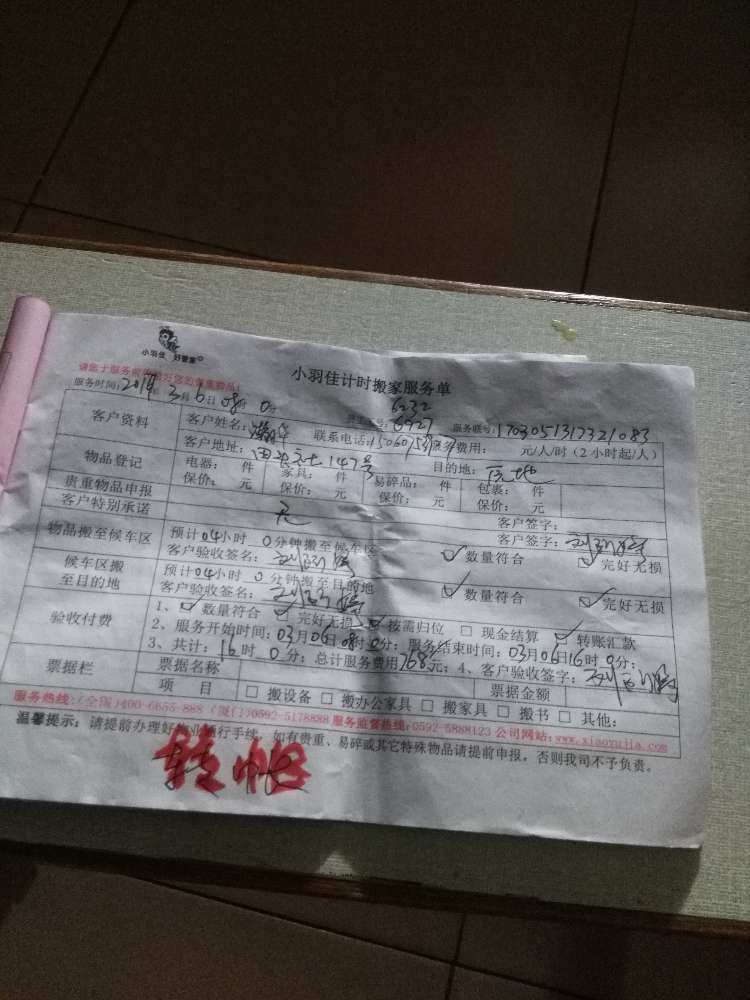 小羽佳 好管家
小羽佳计时搬家服务单
请您于服务前
服务时间:2019年3月6日08时0分
6232
6927
服务账号:1703051317321083
客户资料 客户姓名: 联系电话: 服务费用: 元/人/时(2小时起/人)
客户地址: 147号 目的地:
物品登记 电器: 件 家具: 件 易碎品: 件 包裹: 件
保价: 元 保价: 元 保价: 元 保价: 元
贵重物品申报 无 客户签字:
客户特别承诺 客户签字:
物品搬至候车区 预计04小时 0分钟搬至候车区 数量符合 完好无损
客户验收签名:
候车区搬至目的地 预计04小时 0分钟搬至目的地 数量符合 完好无损
客户验收签名:
验收付费 1、数量符合 完好无损 按需归位 现金结算 转账汇款
2、服务开始时间:03月06日08时0分;服务结束时间:03月06日16时0分;
3、共计:16时0分;总计服务费用768元;4、客户验收签字:
票据栏 票据名称 票据金额
项 目 搬设备 搬办公家具 搬家具 搬书 其他:
服务热线:(全国)400-6655-888 (厦门)0592-5178888 服务监督热线:0592-5888123 公司网站:www.xiaoyujia.com
温馨提示:请提前办理好物业通行手续,如有贵重、易碎或其它特殊物品请提前申报,否则我司不予负责。
转帐